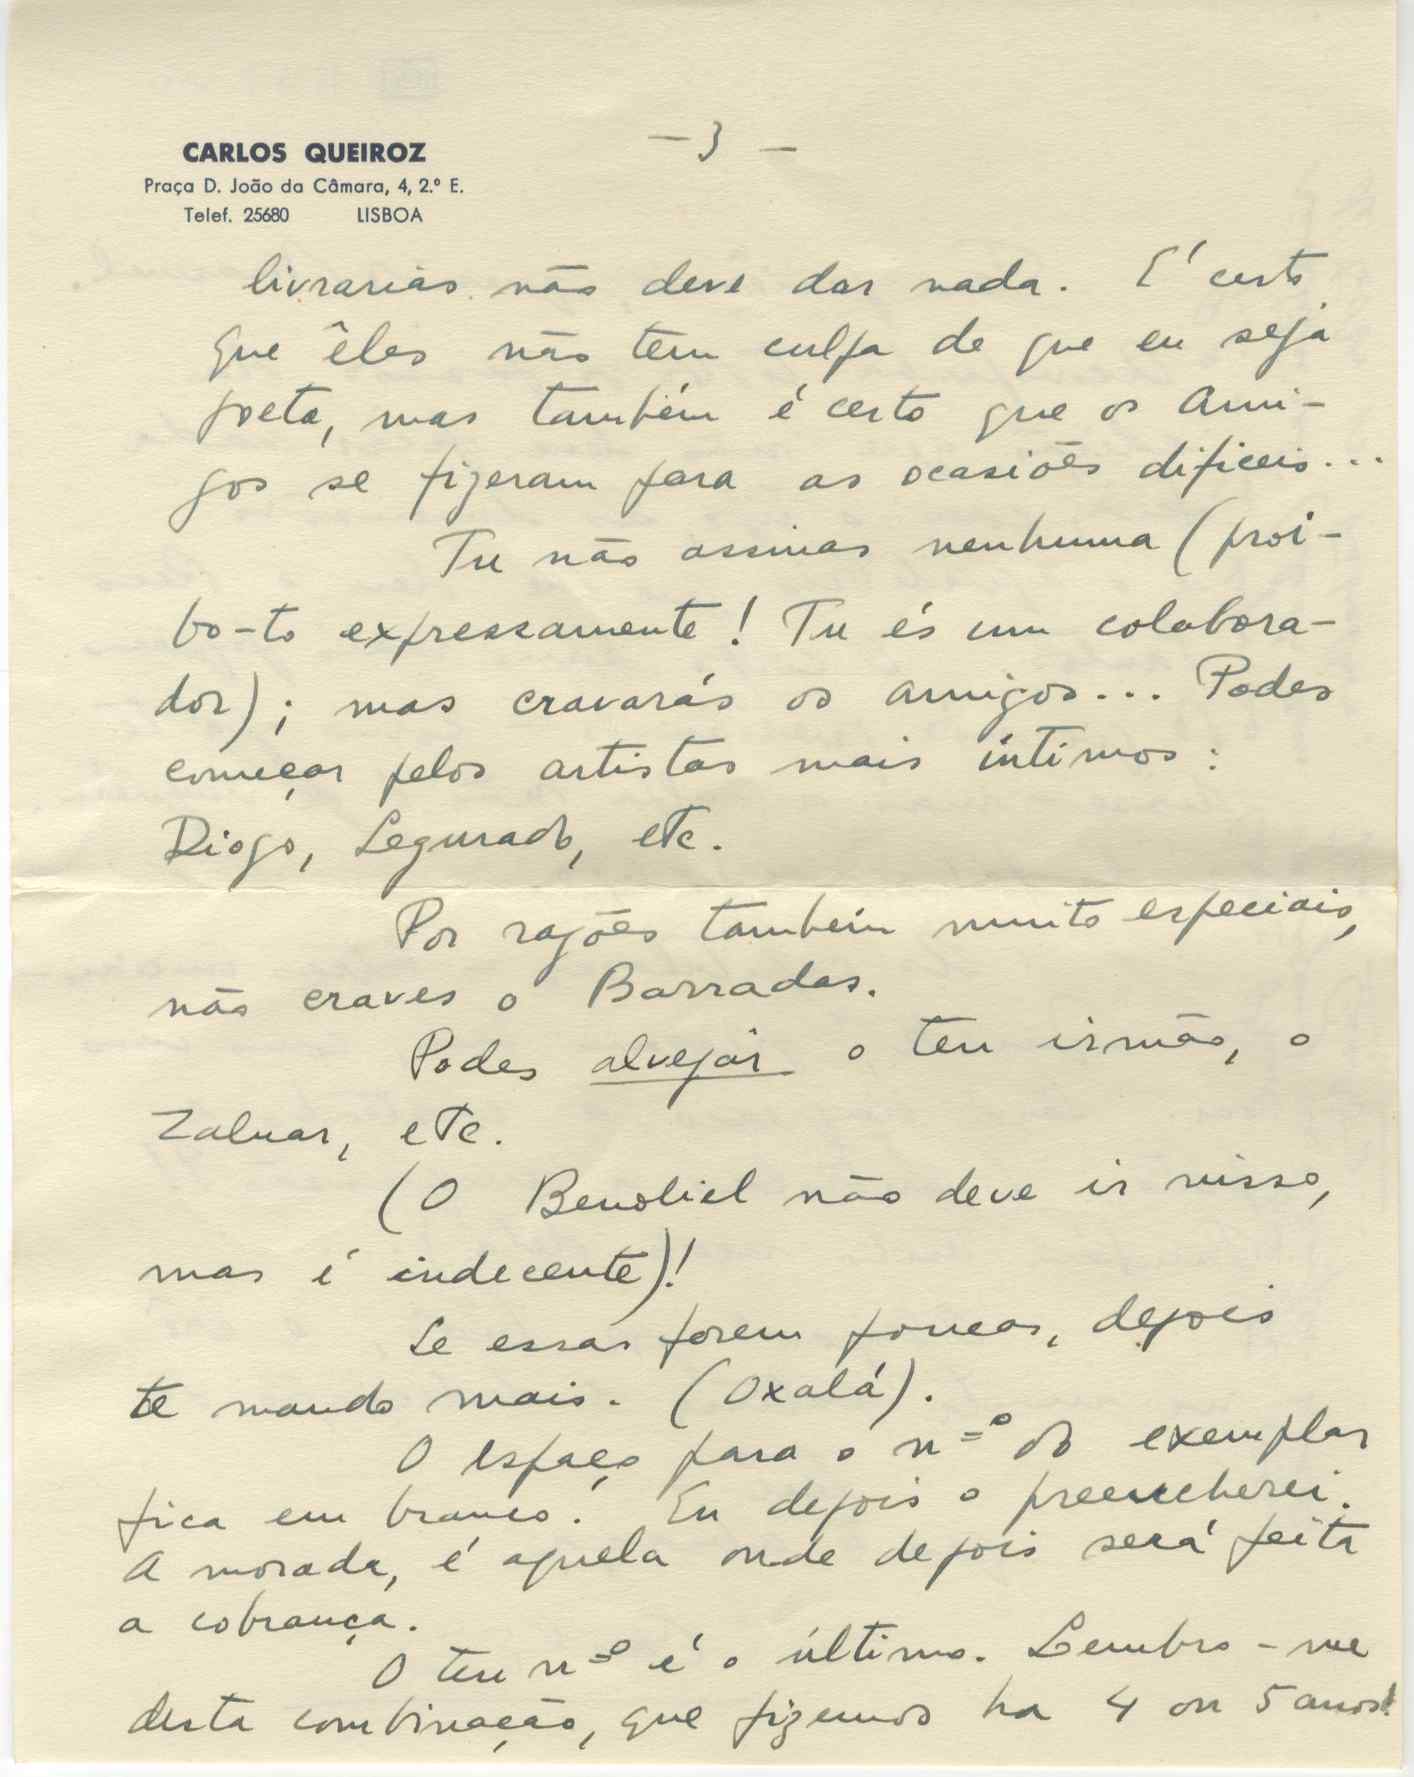 CARLOS QUEIROZ
Praça D. João da Câmara, 4, 2.º E.
Telef. 25680 LISBOA
- 3 -
livrarias não deve dar nada. É certo
que êles não tem culpa de que eu seja
poeta, mas também é certo que os ami-
gos se fizeram para as ocasiões dificeis...
Tu não assinas nenhuma (proi-
bo-to expressamente! Tu és um colabora-
dor); mas cravarás os amigos... Podes
começar pelos artistas mais íntimos:
Diogo, Segurado, etc.
Por razões também muito especiais,
não craves o Barradas.
Podes alvejar o teu irmão, o
Zaluar, etc.
(O Benoliel não deve ir nisso,
mas é indecente)!
Se essas forem poucas, depois
te mando mais. (Oxalá).
O espaço para o nº do exemplar
fica em branco. Eu depois o preencherei.
A morada, é aquela onde depois será feita
a cobrança.
O teu nº é o último. Lembro-me
desta combinação, que fizemos ha 4 ou 5 anos!